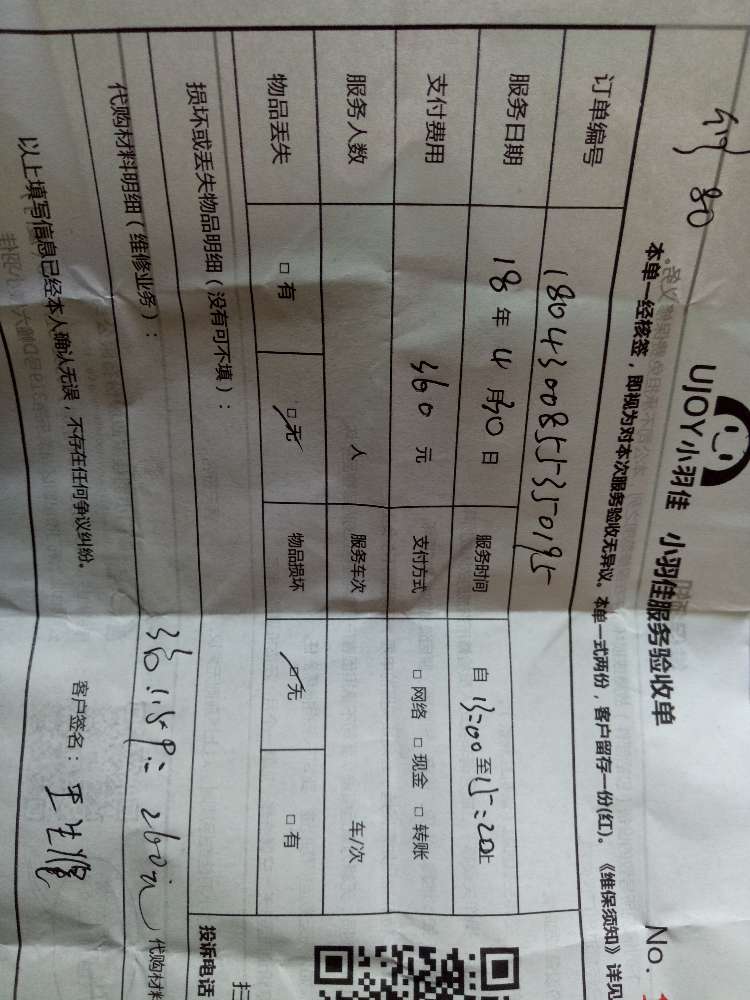 80
UJOY小羽佳 小羽佳服务验收单 No.
本单一经核签，即视为对本次服务验收无异议。本单一式两份，客户留存一份(红)。《维保须知》详见
订单编号 1804300855350195
服务日期 18 年 4 月 30 日 服务时间 自 13:00 至 15:20 止
支付费用 360 元 支付方式 □ 网络 □ 现金 □ 转账
服务人数 人 服务车次 车/次
物品丢失 □ 有 □ 无 物品损坏 □ 无 □ 有
损坏或丢失物品明细（没有可不填）：
投诉电话
代购材料明细（维修业务）： 260元 代购材料
以上填写信息已经本人确认无误，不存在任何争议纠纷。 客户签名：